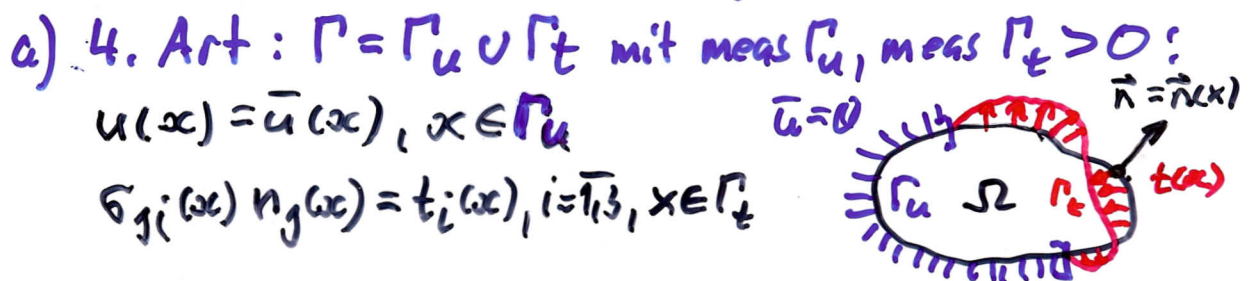 a) 4. Art : Γ = Γ_u ∪ Γ_t mit meas Γ_u, meas Γ_t > 0 :
u(x) = ū(x), x ∈ Γ_u
σ_ji(x) n_j(x) = t_i(x), i = 1,3, x ∈ Γ_t
ū = 0
n⃗ = n⃗(x)
Γ_u Ω Γ_t t(x)